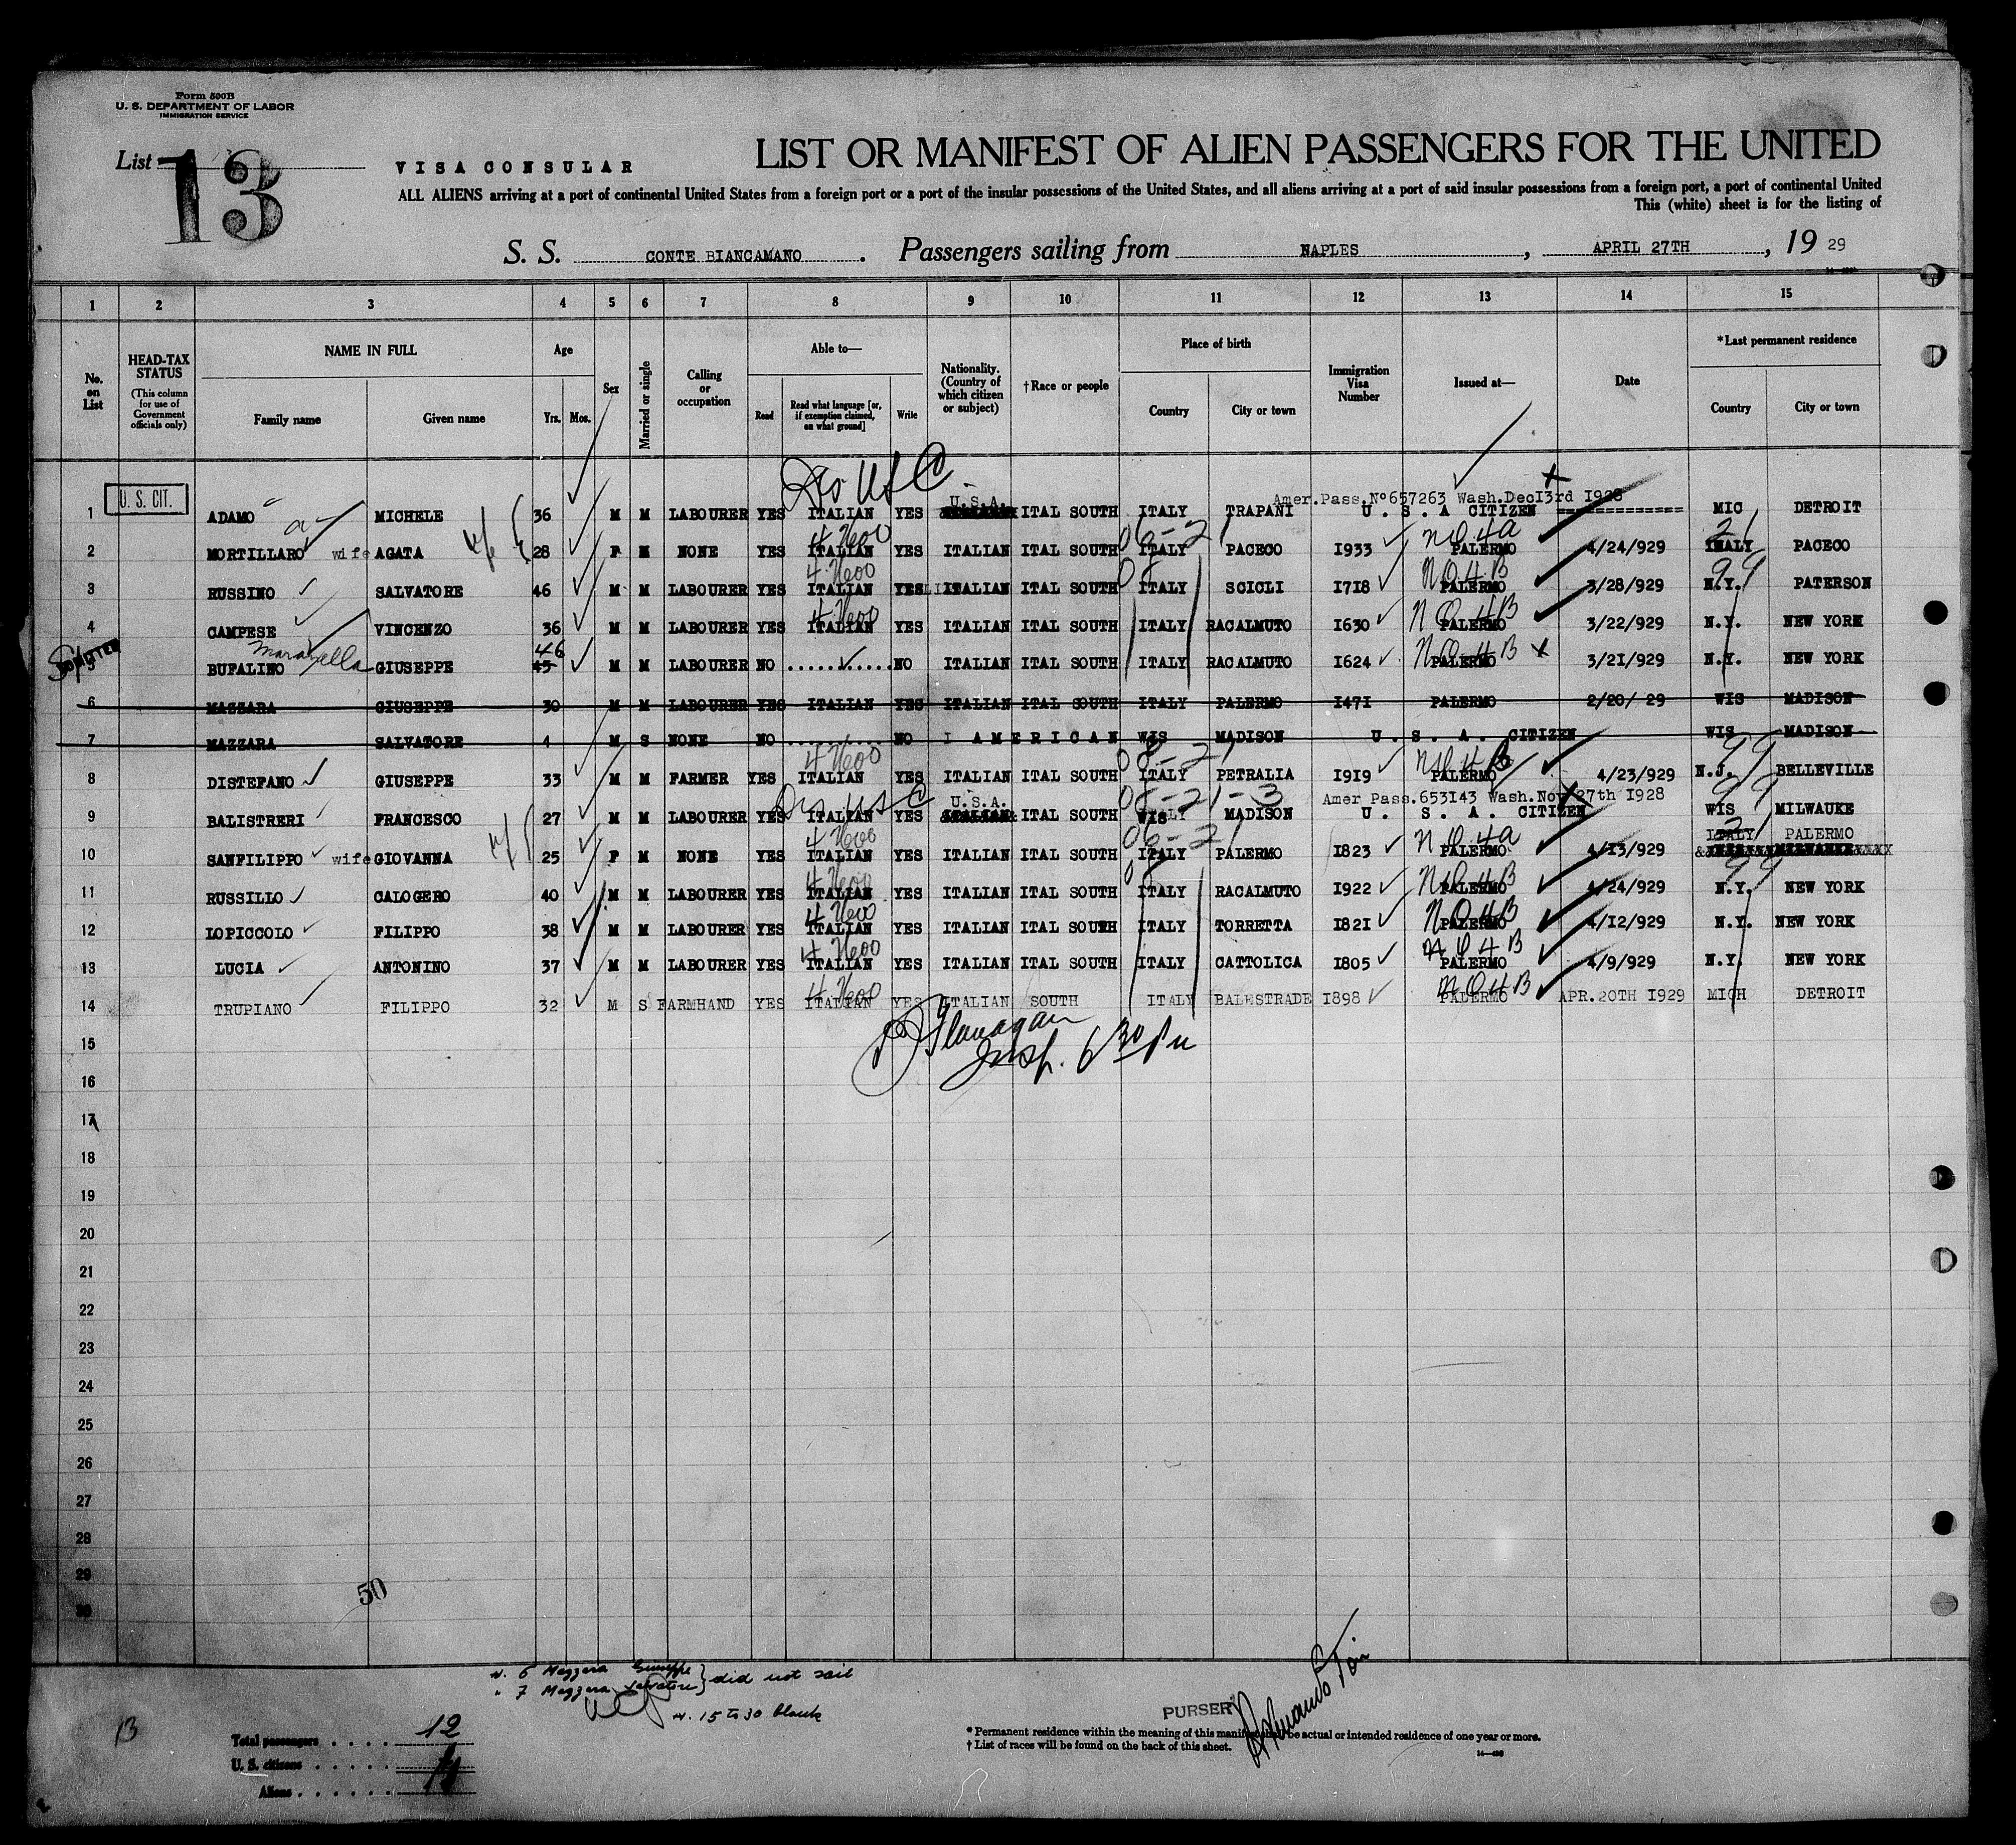 Form 500B
U. S. DEPARTMENT OF LABOR
IMMIGRATION SERVICE
List 13
VISA CONSULAR
LIST OR MANIFEST OF ALIEN PASSENGERS FOR THE UNITED
ALL ALIENS arriving at a port of continental United States from a foreign port or a port of the insular possessions of the United States, and all aliens arriving at a port of said insular possessions from a foreign port, a port of continental United
This (white) sheet is for the listing of
S. S. CONTE BIANCAMANO. Passengers sailing from NAPLES, APRIL 27TH, 19 29
1 2 3 4 5 6 7 8 9 10 11 12 13 14 15
No. on List
HEAD-TAX STATUS
(This column for use of Government officials only)
NAME IN FULL
Family name Given name
Age
Yrs. Mos.
Sex
Married or single
Calling or occupation
Able to—
Read
Read what language [or, if exemption claimed, on what ground]
Write
Nationality. (Country of which citizen or subject)
†Race or people
Place of birth
Country City or town
Immigration Visa Number
Issued at—
Date
*Last permanent residence
Country City or town
U. S. CIT.
U.S.A. Amer.Pass.Nº657263 Wash.Dec13rd 1928
1 ADAMO MICHELE 36 M M LABOURER YES ITALIAN YES ITAL SOUTH ITALY TRAPANI U. S. A CITIZEN ============= MIC DETROIT
4 Heoo 06-21 NQ 4a 21
2 MORTILLARO wife AGATA w/f 28 F M NONE YES ITALIAN YES ITALIAN ITAL SOUTH ITALY PACECO 1933 PALERMO 4/24/929 ITALY PACECO
NQ 4B 99
3 RUSSINO SALVATORE 46 M M LABOURER YES ITALIAN YES ITALIAN ITAL SOUTH ITALY SCICLI 1718 PALERMO 3/28/929 N.Y. PATERSON
NQ 4B
4 CAMPESE VINCENZO 36 M M LABOURER YES ITALIAN YES ITALIAN ITAL SOUTH ITALY RACALMUTO 1630 PALERMO 3/22/929 N.Y. NEW YORK
46 NQ 4B x
5 BUFALINO GIUSEPPE 45 M M LABOURER NO ............ NO ITALIAN ITAL SOUTH ITALY RACALMUTO 1624 PALERMO 3/21/929 N.Y. NEW YORK
6 MAZZARA GIUSEPPE 30 M M LABOURER YES ITALIAN YES ITALIAN ITAL SOUTH ITALY PALERMO 1471 PALERMO 2/20/ 29 WIS MADISON
7 MAZZARA SALVATORE 4 M S NONE NO ............ NO I AMERICAN WIS MADISON U. S. A. CITIZEN WIS MADISON
08-21 NQ 4B 99
8 DISTEFANO GIUSEPPE 33 M M FARMER YES ITALIAN YES ITALIAN ITAL SOUTH ITALY PETRALIA 1919 PALERMO 4/23/929 N.J. BELLEVILLE
U.S.A. 08-21-3 Amer Pass.653143 Wash.Nov 27th 1928 99
9 BALISTRERI FRANCESCO 27 M M LABOURER YES ITALIAN YES ITALIAN ITAL SOUTH WIS MADISON U. S. A. CITIZEN WIS MILWAUKE
06-21 NQ 4a ITALY PALERMO
10 SANFILIPPO wife GIOVANNA w/f 25 F M NONE YES ITALIAN YES ITALIAN ITAL SOUTH ITALY PALERMO 1823 PALERMO 4/13/929
NQ 4B 99
11 RUSSILLO CALOGERO 40 M M LABOURER YES ITALIAN YES ITALIAN ITAL SOUTH ITALY RACALMUTO 1922 PALERMO 4/24/929 N.Y. NEW YORK
NQ 4B
12 LOPICCOLO FILIPPO 38 M M LABOURER YES ITALIAN YES ITALIAN ITAL SOUTH ITALY TORRETTA 1821 PALERMO 4/12/929 N.Y. NEW YORK
NQ 4B
13 LUCIA ANTONINO 37 M M LABOURER YES ITALIAN YES ITALIAN ITAL SOUTH ITALY CATTOLICA 1805 PALERMO 4/9/929 N.Y. NEW YORK
NQ 4B
14 TRUPIANO FILIPPO 32 M S FARMHAND YES ITALIAN YES ITALIAN SOUTH ITALY BALESTRADE 1898 PALERMO APR.20TH 1929 MICH DETROIT
Flanagan
15 Insp. 6 30 PM
16
17
18
19
20
21
22
23
24
25
26
27
28
29
30
50
N. 6 Mazzara Giuseppe
" 7 Mazzara Salvatore } did not sail
N. 15 to 30 blank
13
Total passengers .... 12
U. S. citizens .....
Aliens ......
PURSER
* Permanent residence within the meaning of this manifest shall be actual or intended residence of one year or more.
† List of races will be found on the back of this sheet.